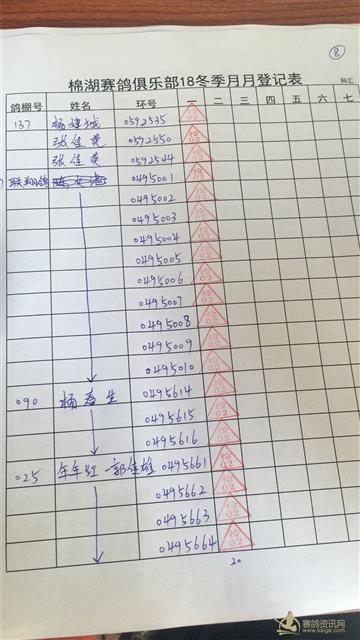 ⑧
棉湖赛鸽俱乐部18冬季月月登记表 科汇
鸽棚号 姓名 环号 一 二 三 四 五 六 七
137 杨建城 0592535
张佳英 0592550
张佳英 0592544
联翔鸽 0495001
0495002
0495003
0495004
0495005
0495006
0495007
0495008
0495009
0495010
090 杨春生 0495614
0495615
0495616
025 年年红 郭佳雄 0495661
0495662
0495663
0495664
20
赛鸽资讯网
www.saige.com